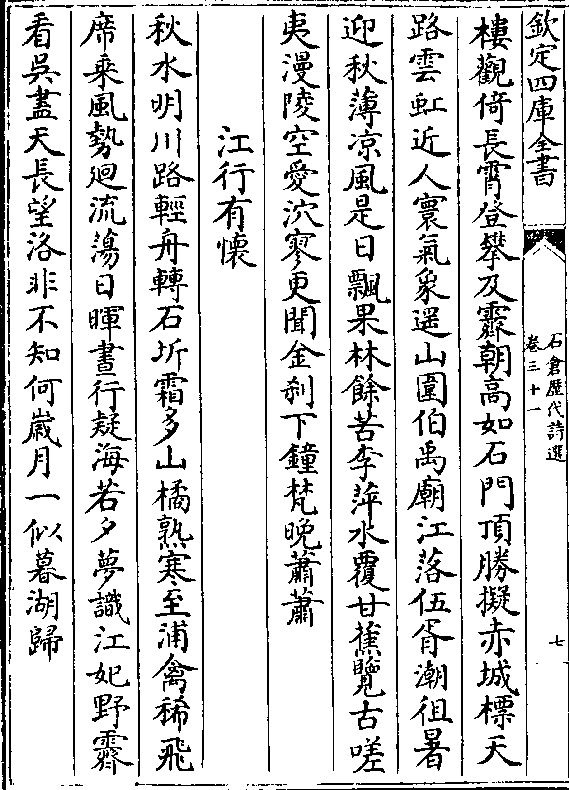 欽定四庫全書
石倉歴代詩選
卷三十一
七
樓觀倚長霄登攀及霽朝高如石門頂勝擬赤城標天
路雲虹近人寰氣象遥山圍伯禹廟江落伍胥潮徂暑
迎秋薄凉風是日飄果林餘苦李萍水覆甘蕉覽古嗟
夷漫陵空愛泬寥更聞金刹下鐘梵晚蕭蕭
江行有懷
秋水明川路輕舟轉石圻霜多山橘熟寒至浦禽稀飛
席乘風勢廻流蕩日暉晝行疑海若夕夢識江妃野霽
看吳盡天長望洛非不知何歳月一似暮湖歸